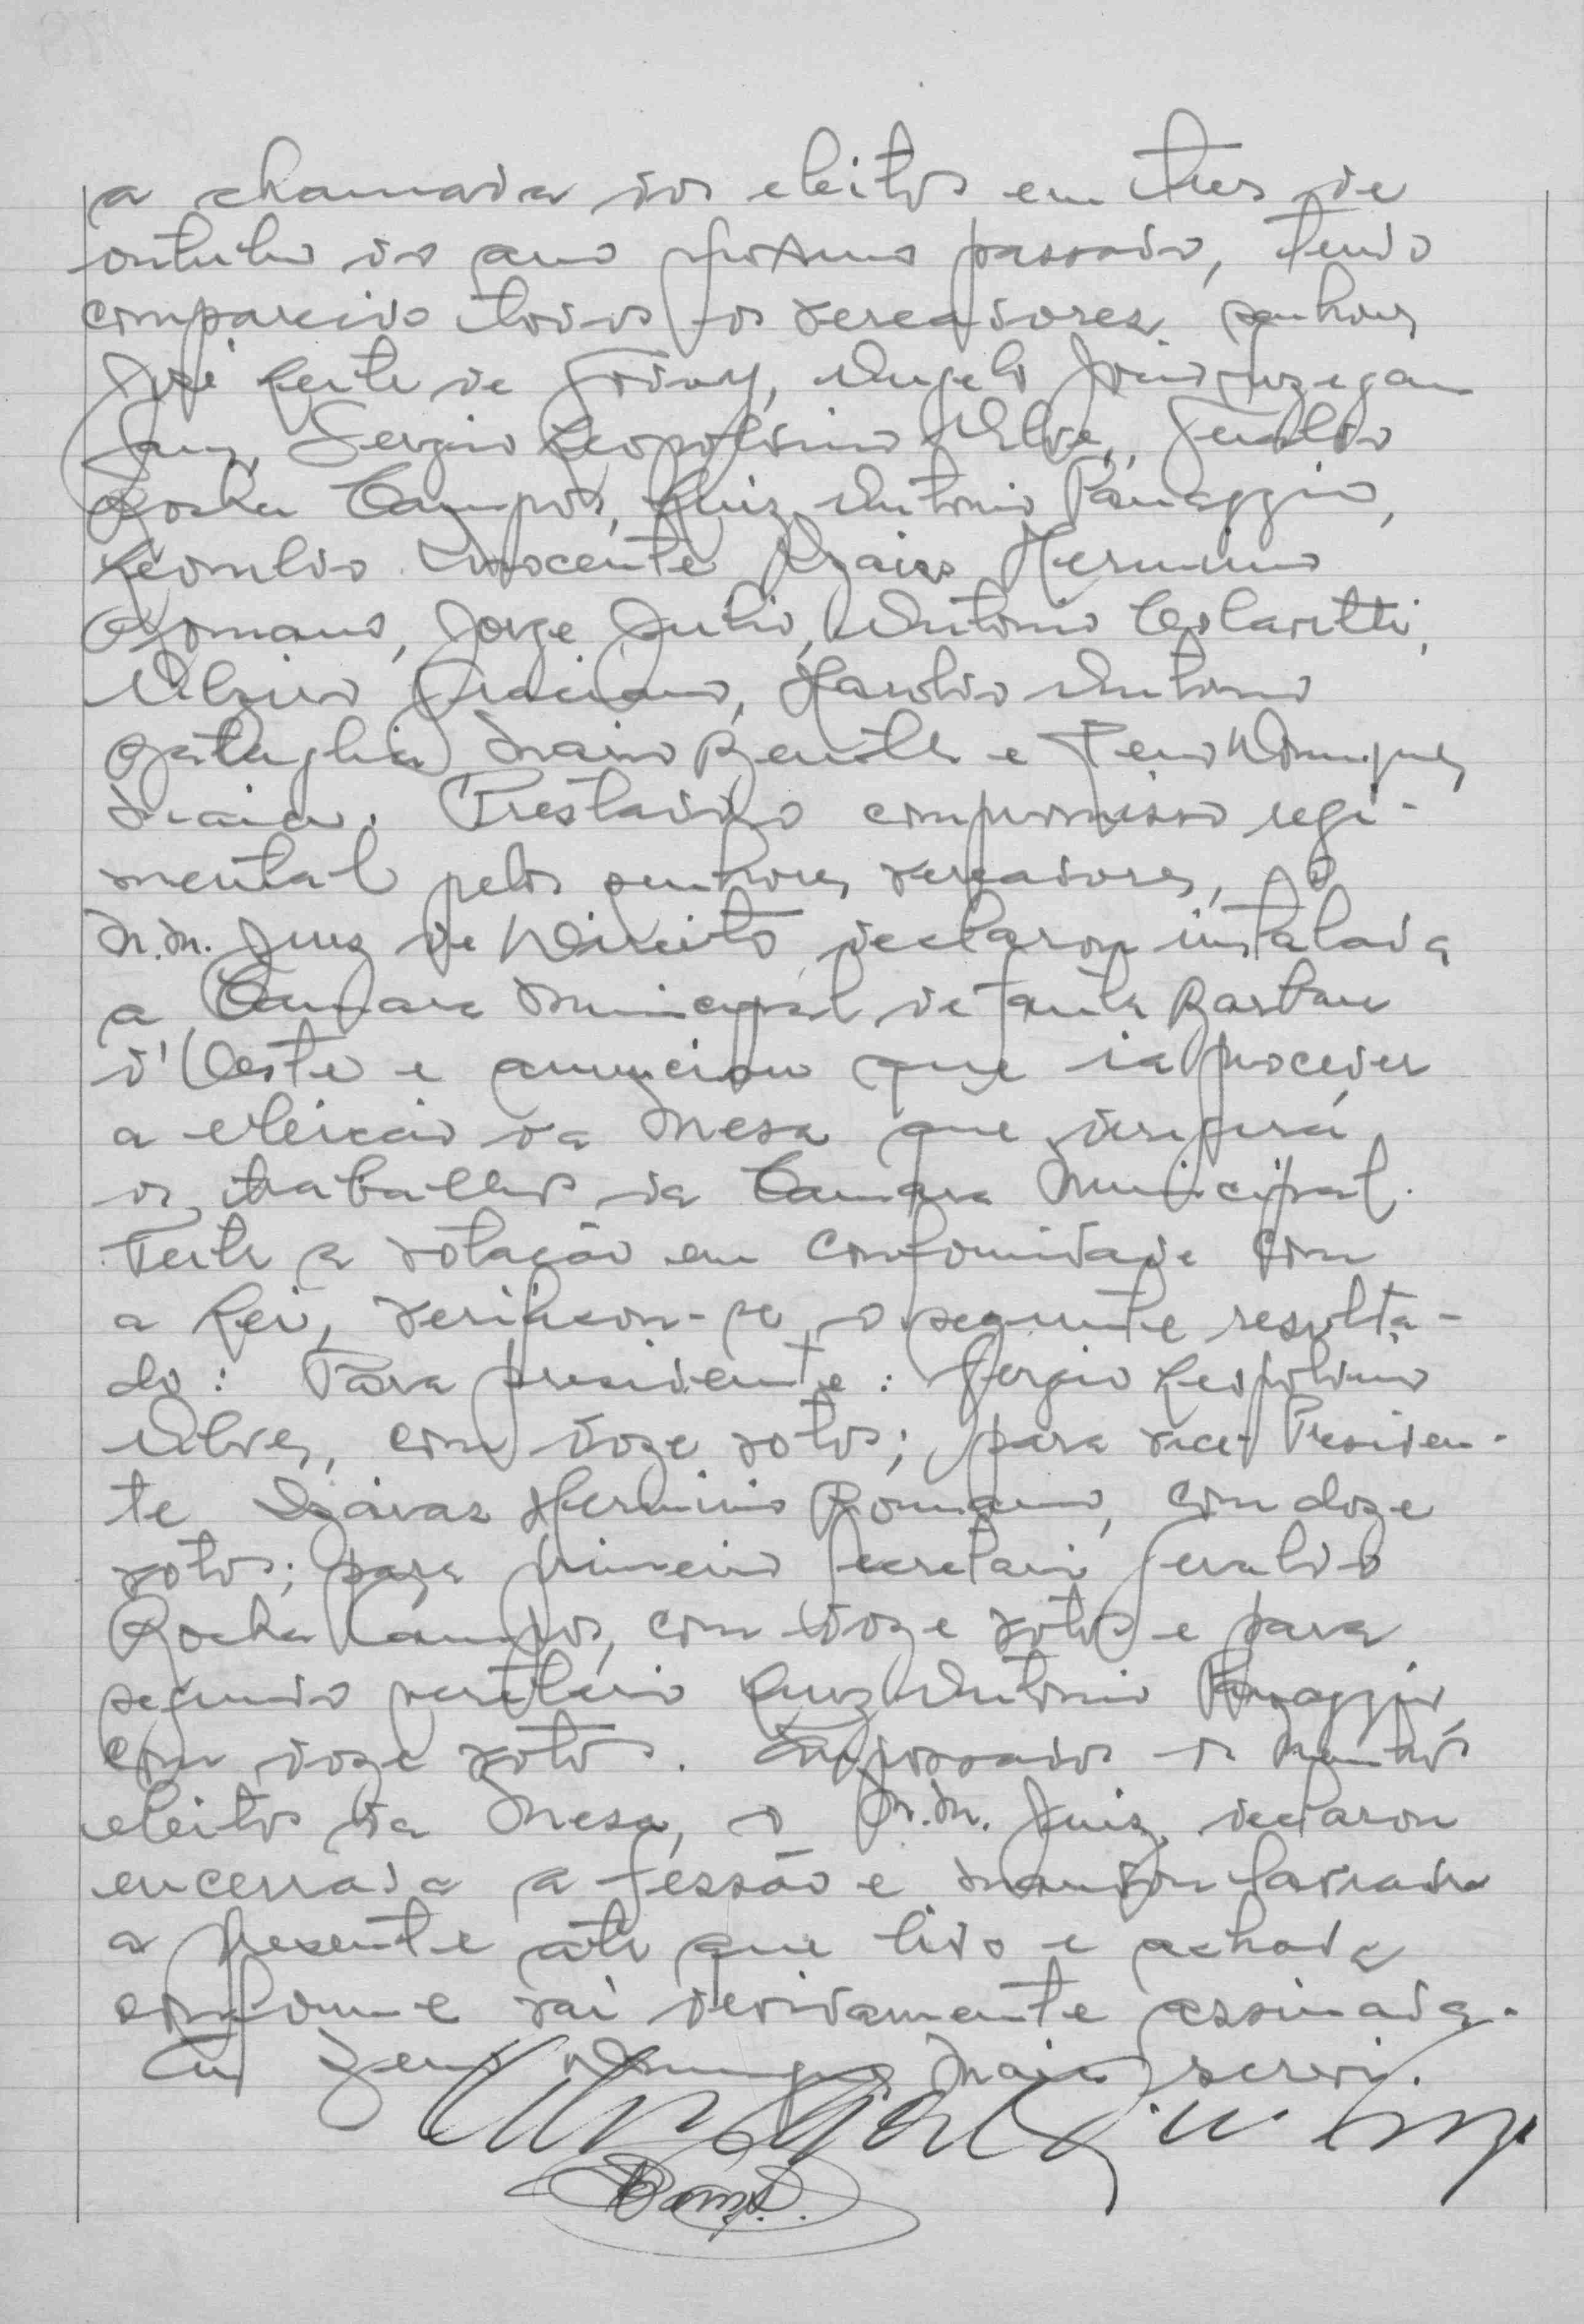 a chamada dos eleitos em tres de
outubro do ano proximo passado, tendo
comparecido todos os vereadores senhores
José Leite de Godoy, Angelo
Sergio Leopoldino Alves, Geraldo
Rocha Campos, Luiz Antonio Panaggio,
Leonildo Inocente Izaias Herminio
Romano, Jorge Julio, Antonio
Graciano, Haroldo Antonio
Bataglia Mario e Zeno Domingues
Maia. Prestado o compromisso regi-
mental pelos senhores vereadores, o
M.M. Juiz de Direito declarou instalada
a Camara Municipal de Santa Barbara
d'Oeste e anunciou que ia proceder
a eleição da Mesa que dirigirá
os trabalhos da Camara Municipal.
Feita a votação em conformidade com
a Lei, verificou-se o seguinte resulta-
do: Para presidente: Sergio Leopoldino
Alves, com doze votos; para vice-Presiden-
te Izaias Herminio Romano, com doze
votos; para primeiro secretario Geraldo
Rocha Campos, com doze votos e para
segundo secretário Luiz Antonio Panaggio,
com doze votos. Empossados os membros
eleitos da Mesa, o M.M. Juiz declarou
encerrada a sessão e mandou lavrada
a presente ata que lida e achada
conforme vai devidamente assinada.
Eu Zeno Domingues Maia escrevi.